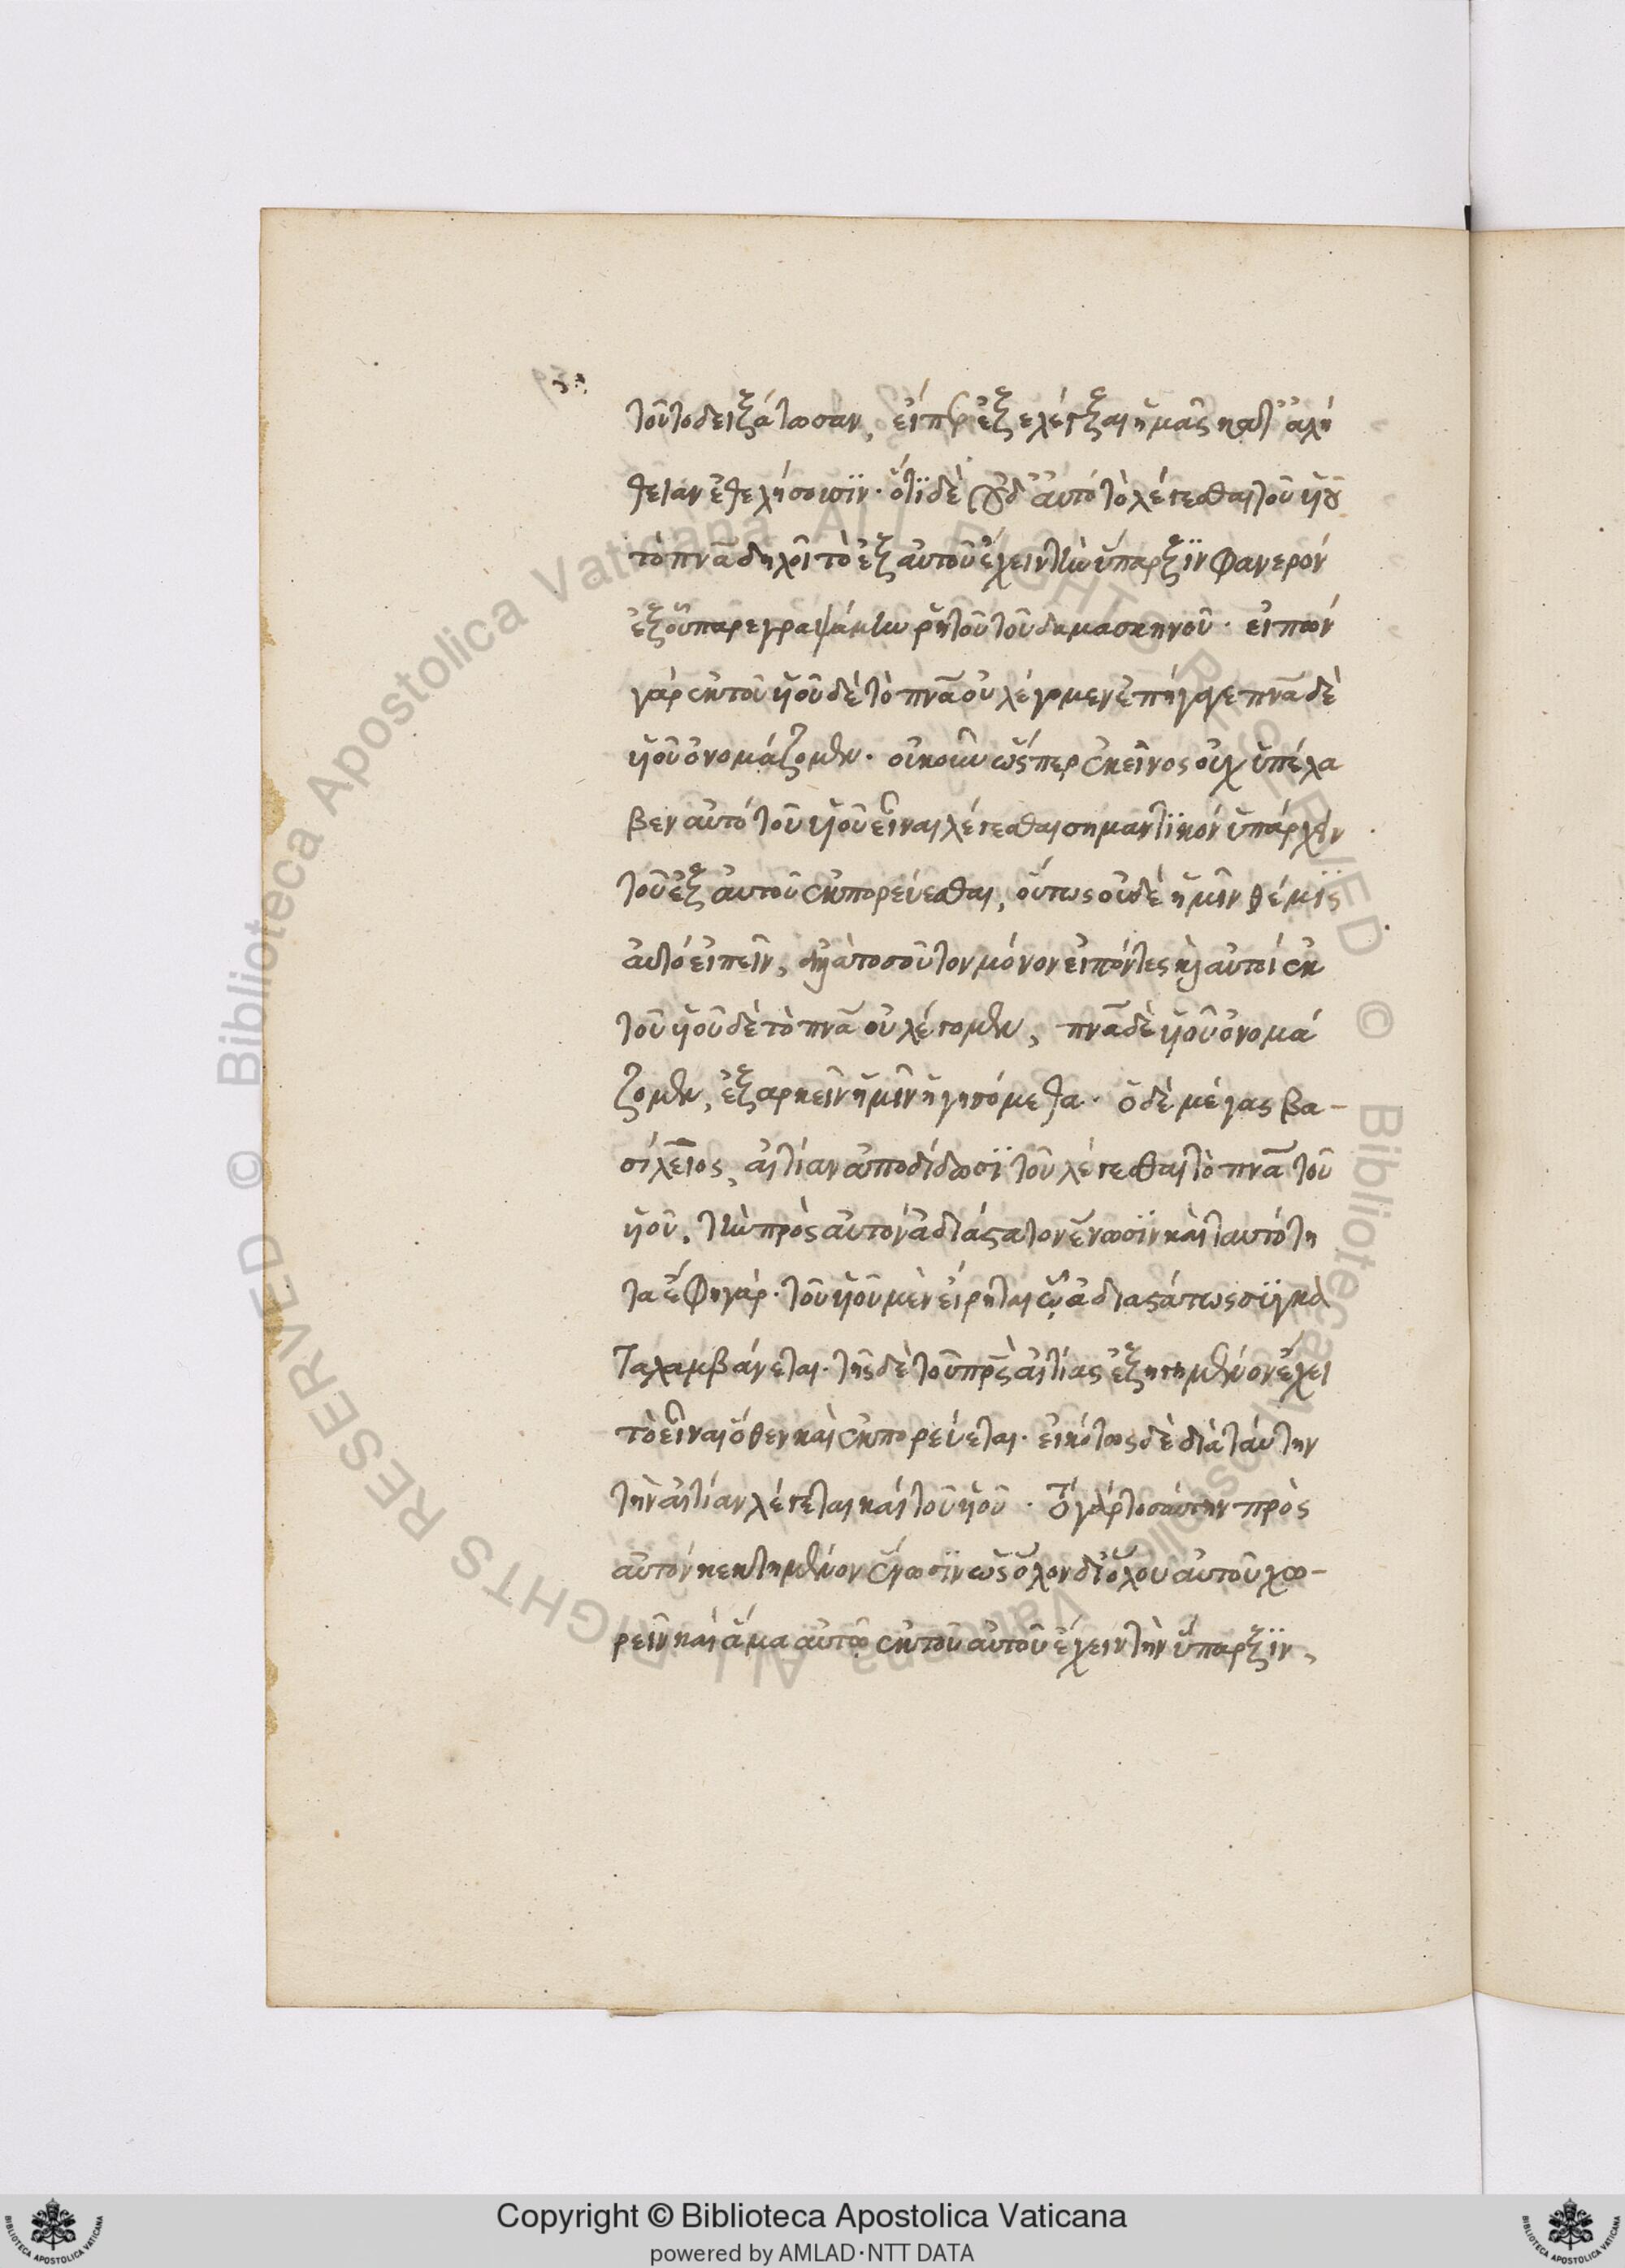 τοῦτο δειξάτωσαν, εἴπερ ἐξελέγξαι ἡμᾶς κατ' ἀλή
θειαν ἐθελήσουσϊν· ὅτϊ δὲ οὐδ' αὐτὸ τὸ λέγεσθαι τοῦ ϋἱοῦ
τὸ πνᾶ δηλοῖ τὸ ἐξ αὐτοῦ ἔχειν τὴν ὕπαρξϊν φανερόν
ἐξ οὗ παρεγραψάμην ῥητοῦ τοῦ δαμασκηνοῦ· εἰπών
γάρ ἐκ τοῦ ϋἱοῦ δὲ τὸ πνᾶ οὐ λέγομεν ἐπήγαγε πνᾶ δὲ
ϋἱοῦ ὀνομάζομεν· οὐκοῦν ὥσπερ ἐκεῖνος οὐχ ὑπέλα
βεν αὐτό τοῦ ϋἱοῦ εἶναι λέγεσθαι σημαντϊκόν ὑπάρχειν
τοῦ ἐξ αὐτοῦ ἐκπορεύεσθαι, οὕτως οὐδὲ ἡμῖν θέμϊς
αὐτό εἰπεῖν, ἀλλὰ τοσοῦτον μόνον εἰπόντες καὶ αὐτοί ἐκ
τοῦ ϋἱοῦ δὲ τὸ πνᾶ οὐ λέγομεν, πνᾶ δὲ ϋἱοῦ ὀνομά
ζομεν, ἐξαρκεῖν ἡμῖν ἡγησόμεθα· ὁ δὲ μέγας βα-
σίλειος, αἰτίαν ἀποδίδωσϊ τοῦ λέγεσθαι τὸ πνᾶ τοῦ
ϋἱοῦ, τὴν πρὸς αὐτόν ἀδιάστατον ἕνωσϊν καὶ ταυτότη
τα ἔφη γάρ· τοῦ ϋἱοῦ μὲν εἴρηται ᾧ ἀδιαστάτως συγκα
ταλαμβάνεται· τῆς δὲ τοῦ πρς αἰτίας ἐξηρτημένον ἔχει
τὸ εἶναι ὅθεν καὶ ἐκπορεύεται· εἰκότως δὲ διὰ ταύτην
τὴν αἰτίαν λέγεται καί τοῦ ϋἱοῦ· Τὸ γάρ τοσαύτην πρὸς
αὐτόν κεκτημένον ἕνωσϊν ὡς ὅλον δϊ ὅλου αὐτοῦ χω-
ρεῖν καί ἅμα αὐτῷ ἐκ τοῦ αὐτοῦ ἔχειν τὴν ὕπαρξϊν,
Copyright © Biblioteca Apostolica Vaticana
powered by AMLAD·NTT DATA